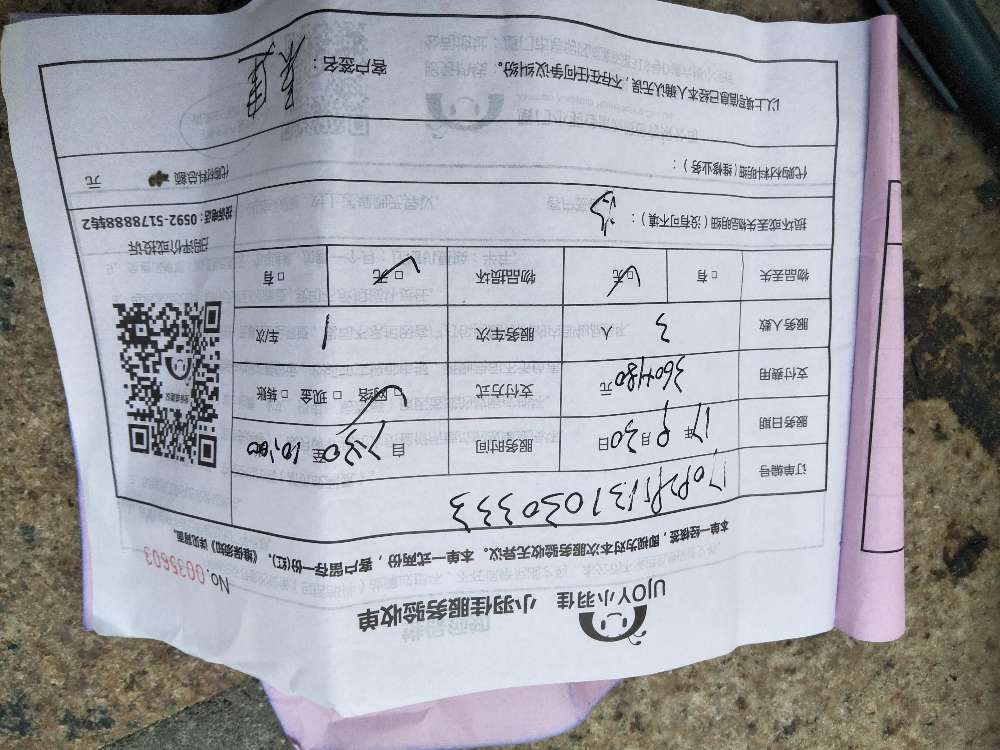 UJOY小羽佳 小羽佳服务验收单
No. 0035603
本单一经核签，即视为对本次服务验收无异议。本单一式两份，客户留存一份(红)，《维保须知》详见背面。
订单编号
服务日期 17年9月30日 服务时间 自7:30至10:00
支付费用 360+180元 支付方式 □网络 □现金 □转账
服务人数 3人 服务车次 1车次
物品丢失 □有 □无 物品损坏 □无 □有
请评价或投诉
投诉电话：0592-5178888转2
损坏或丢失物品明细（没有可不填）：
代购材料明细（维修业务）：
代购材料总额 元
以上填写信息已经本人确认无误，不存在任何争议纠纷。
客户签名：